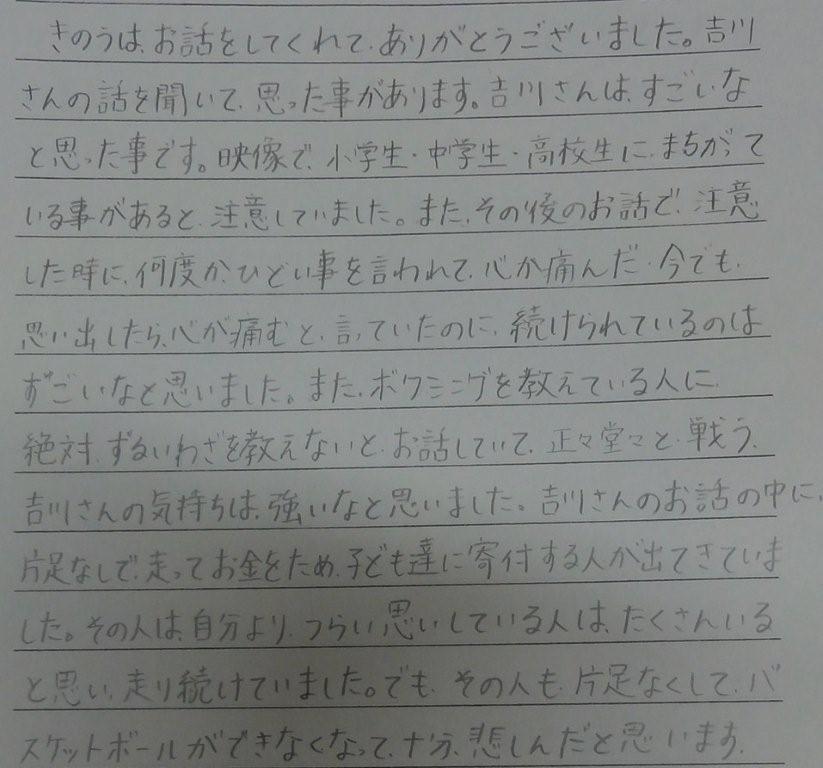 きのうは、お話をしてくれて、ありがとうございました。吉川
さんの話を聞いて、思った事があります。吉川さんは、すごいな
と思った事です。映像で、小学生・中学生・高校生に、まちがって
いる事があると、注意していました。また、その後のお話で、注意
した時に、何度か、ひどい事を言われて、心が痛んだ、今でも、
思い出したら、心が痛むと、言っていたのに、続けられているのは
すごいなと思いました。また、ボクシングを教えている人に、
絶対、ずるいわざを教えないと、お話していて、正々堂々と、戦う、
吉川さんの気持ちは、強いなと思いました。吉川さんのお話の中に、
片足なしで、走ってお金をため、子ども達に寄付する人が出てきていま
した。その人は、自分より、つらい思いしている人は、たくさんいる
と思い、走り続けていました。でも、その人も、片足なくして、バ
スケットボールができなくなって、十分、悲しんだと思います。